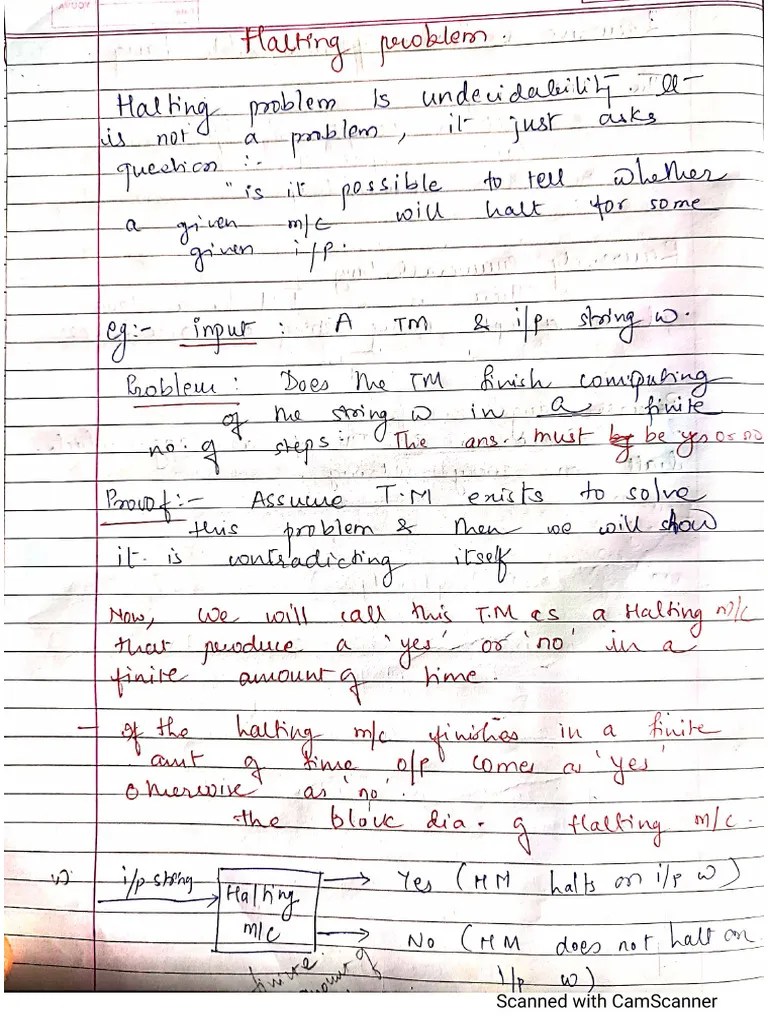 Halting problem.
Halting problem is undecidability. It
is not a problem, it just asks
question :-
"is it possible to tell whether
a given m/c will halt for some
given i/p.
eg:- input : A TM & i/p string w.
Problem : Does the TM finish computing
of the string w in a finite
no. of steps. The ans. must be yes or no
Proof :- Assume T.M exists to solve
this problem & then we will show
it is contradicting itself
Now, we will call this T.M as a Halting m/c
that produce a 'yes' or 'no' in a
finite amount of time.
- If the halting m/c finishes in a finite
amt of time o/p comes as 'yes'
otherwise as 'no'.
the block dia. of Halting m/c.
i/p string Halting m/c → Yes (HM halts on i/p w)
→ No (HM does not halt on
i/p w)
finite
amount of
Scanned with CamScanner